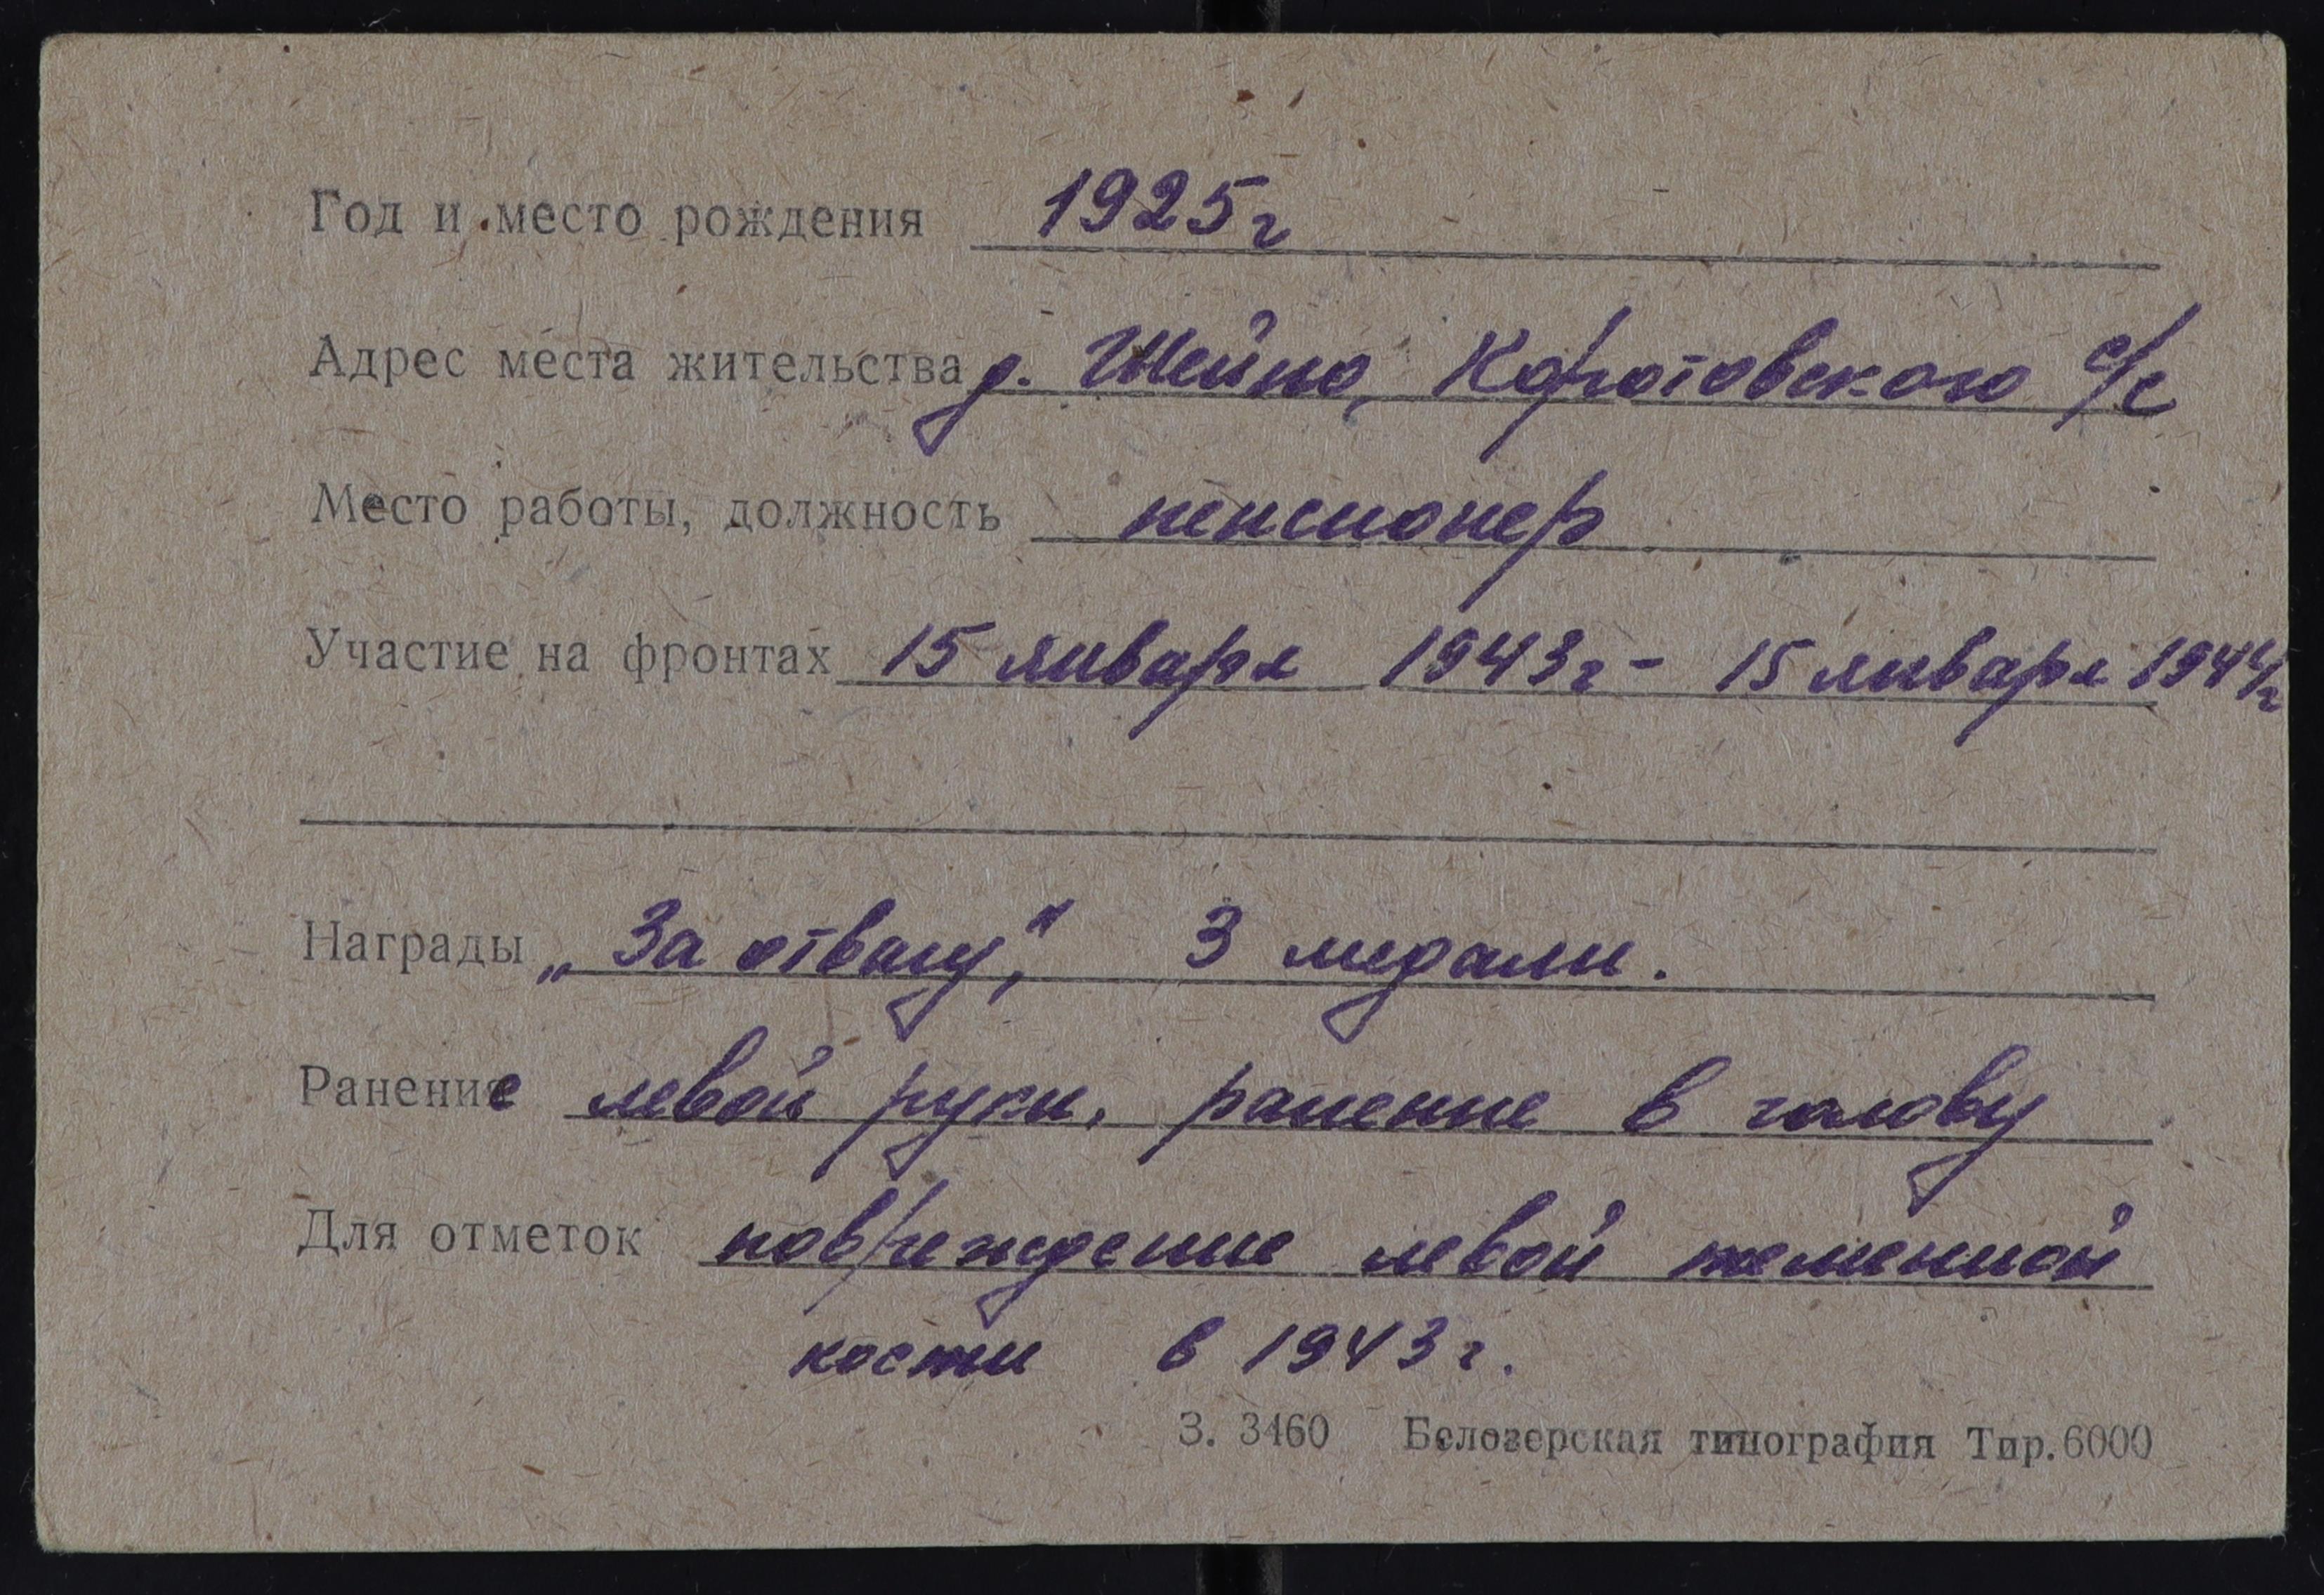 Год и место рождения 1925г
Адрес места жительства д. Шейно, Коротовского с/с
Место работы, должность пенсионер
Участие на фронтах 15 января 1943г - 15 января 1944г
Награды „За отвагу," 3 медали.
Ранение левой руки, ранение в голову
Для отметок повреждение левой теменной
кости в 1943 г.
З. 3460 Белозерская типография Тир. 6000